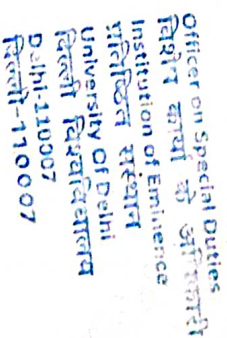 Officer on Special Duties
विशेष कार्य के अधिकारी
Institution of Eminence
प्रतिष्ठित संस्थान
University Of Delhi
दिल्ली विश्वविद्यालय
Delhi-110007
दिल्ली-110007